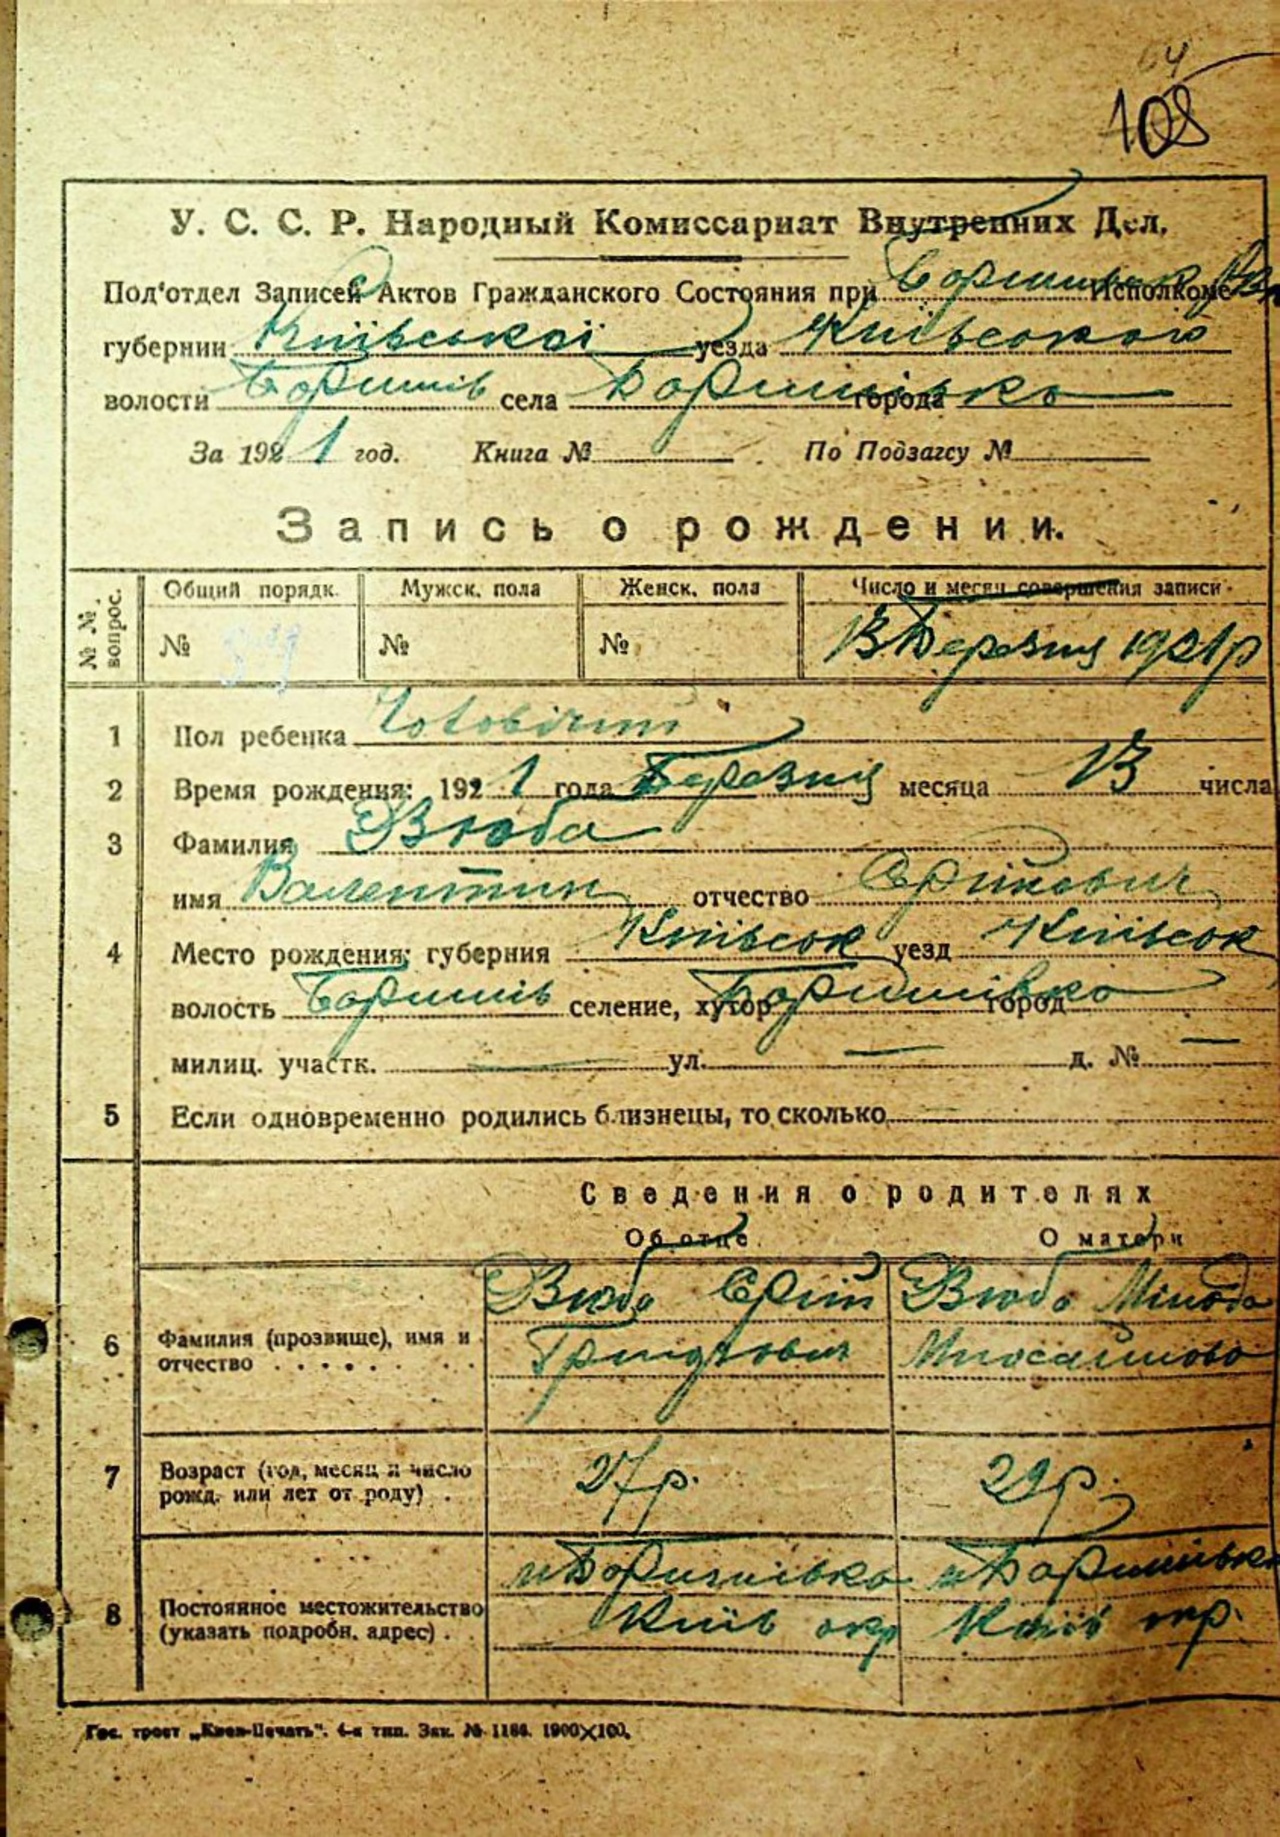 64
108
У. С. С. Р. Народный Комиссариат Внутренних Дел.
Под'отдел Записей Актов Гражданского Состояния при Исполкоме
губернии Київської уезда Київського
волости Боришів села Боришівка города
За 1921 год. Книга № По Подзагсу №
Запись о рождении.
№ № вопрос. Общий порядк. Мужск. пола Женск. пола Число и месяц совершения записи
№ № № 13 Березня 1921р
1 Пол ребенка Чоловічий
2 Время рождения: 1921 года Березня месяца 13 числа
3 Фамилия Дзюба
имя Валентин отчество
4 Место рождения: губерния Київськ уезд Київськ
волость Боришів селение, хутор Боришівка город
милиц. участк. — ул. — д. № —
5 Если одновременно родились близнецы, то сколько —
Сведения о родителях
Об отце О матери
6 Фамилия (прозвище), имя и Дзюба Дзюба
отчество . . . . . . . .
7 Возраст (год, месяц и число 27р. 29р.
рожд. или лет от роду) .
м Боришівка м Боришівка
8 Постоянное местожительство Київ окр Київ окр.
(указать подробн. адрес) .
Гос. трест „Киев-Печать". 4-я тип. Зак. № 1184. 1900×100.